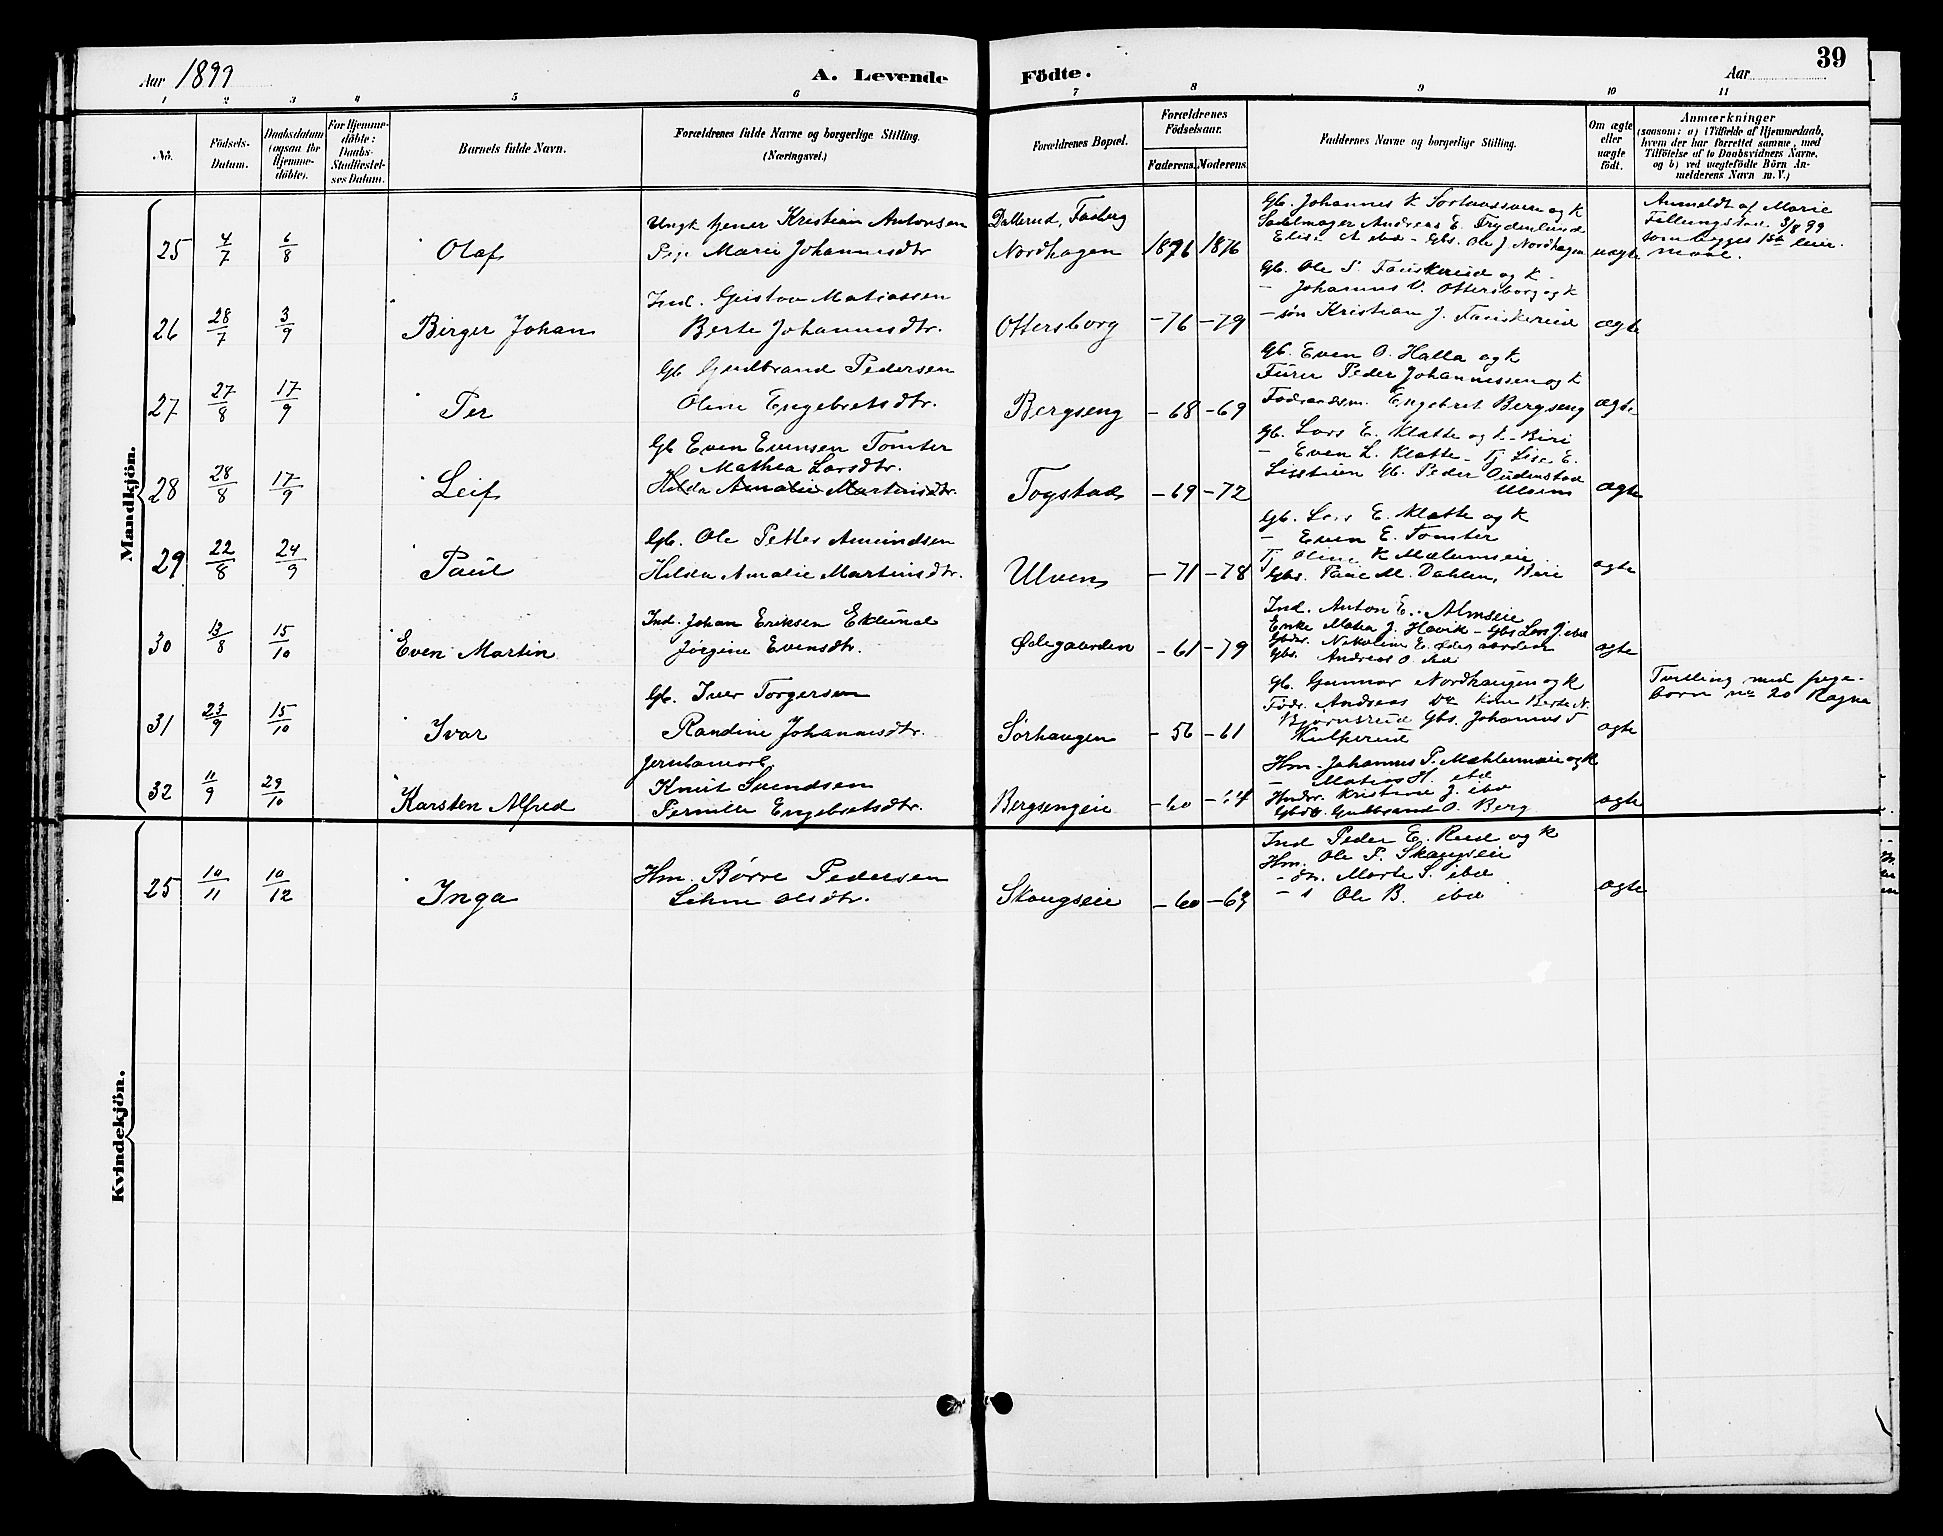 Aar 1899
A. Levende
Födte.
Aar
39
1 2 3 4 5 6 7 8 9 10 11
No.
Födsels-
Datum.
Daabsdatum
(ogsaa for
Hjemme-
döbte).
For Hjemme-
döbte:
Daabs-
Stadfæstel-
ses Datum.
Barnets fulde Navn.
Forældrenes fulde Navne og borgerlige Stilling.
(Næringsvei.)
Forældrenes Bopæl.
Forældrenes
Födselsaar.
Faderens. Moderens.
Faddernes Navne og borgerlige Stilling.
Om ægte
eller
uægte
födt.
Anmærkninger
(saasom: a) i Tilfælde af Hjemmedaab,
hvem der har forrettet samme, med
Tilföielse af to Daabsvidners Navne,
og b) ved uægtefödte Börn An-
melderens Navn m. V.)
Mandkjön.
25 4/7 6/8 Olaf
Ungk tjener Kristian Antonsen
Pige Marie Johannesdtr
Dallerud, Faaberg
Nordhagen 1876 1876
Gb. Johannes K og k
Sadelmager Andreas E. Frydenlund
Elise A ibd - Gbs. Ole J Nordhagen
uægte
Anmeldt af Marie
Fillungstad 3/8 99
som bygges 1ste leier-
maal.
26 28/7 3/9 Birger Johan
Ind. Gustav Matiassen
Berte Johannesdtr.
Ottersborg -76 -79
Gb. Ole S. Fauskerud og k -
- Johannes O. Ottersborg og k
- søn Kristian J. Fauskerud
ægte
27 27/8 17/9 Per
Gb Gudbrand Pedersen
Oline Engebretsdtr.
Bergseng -68 -69
Gb. Even O. Halla og k
Furer Peder Johannessen og k
Føderaadsm. Engebret Bergseng
ægte
28 28/8 17/9 Leif
Gb Even Evensen Tomter
Mathea Larsdtr.
Hilda Amalie Martinsdtr.
Togstad -69 -72
Gb. Lars E. Klatte og k - Biri
- Even L. Klatte - Tj Lise E.
Gb. Peder Oudenstad
Ulven
ægte
29 22/8 24/9 Paul
Gb. Ole Petter Amundsen
Hilda Amalie Martinsdtr.
Ulven -71 -78
Gb. Lars E. Klatte og k
- Even E. Tomter
Tj Oline K Mælumseie
Gbs. Paul M. Dahlen, Biri
ægte
30 13/8 15/10 Even Martin
Ind. Johan Eriksen Eklund
Jørgine Evensdtr.
Ødegaarden -61 -79
Ind. Anton E. Almseie
Enke Matea J. Hovik - Gbs Lars J ibd
Gbdtr. Nikoline E. Ødegaarden
Gbs. Andreas O. ibd
ægte
31 23/9 15/10 Ivar
Gb. Iver Torgersen
Randine Johannesdtr.
Sørhaugen -56 -61
Gb. Gunnar Nordhaugen og k
Fødr. Andreas Do Kone Berte N.
Bjørnsrud Gbs. Johannes T
Kulperud
ægte
Tvilling med pige-
barn no 20 Ragna
32 11/9 29/10 Karsten Alfred
Jernbanearb.
Knut Svendsen
Pernille Engebretsdtr.
Bergsengeie -60 -64
Hm. Johannes P. Mæhlumseie og k
- Matias H. ibd
Hmdtr. Kristine J. ibd
Gbds. Gudbrand O. Berg
ægte
Kvindekjön.
25 10/11 10/12 Inga
Hm. Børre Pedersen
Lihne Olsdtr.
Skougseie -60 -63
Ind Peder E. Rud og k
Hm. Ole P. Skougseie
- dtr. Marte P. ibd
- s Ole B. ibd
ægte